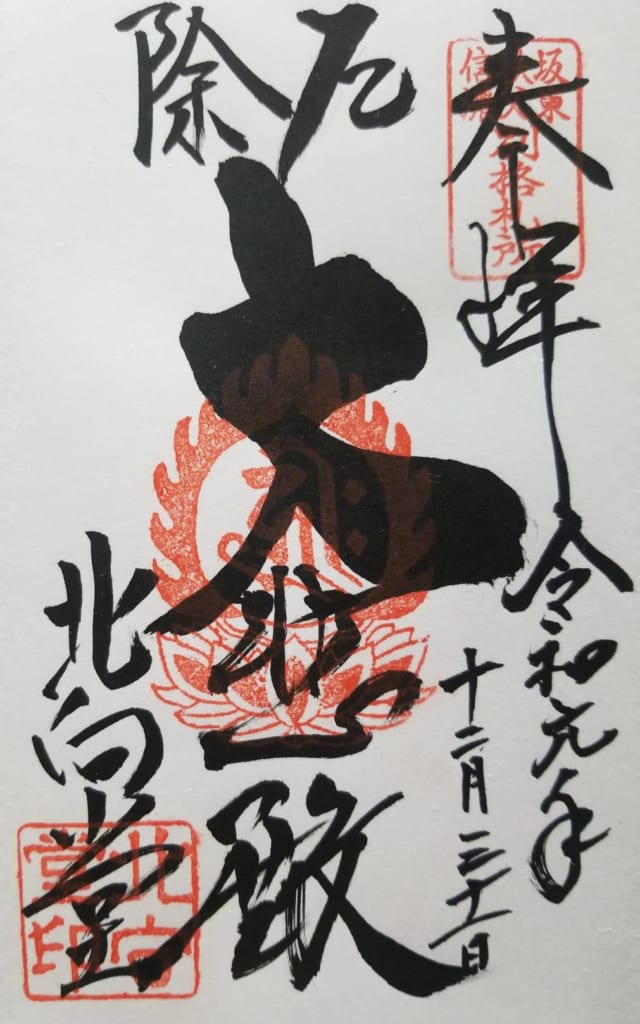 奉拝
令和元年
十二月三十一日
厄除
大悲殿
北向堂
坂東
信濃
別格札所
北向堂印